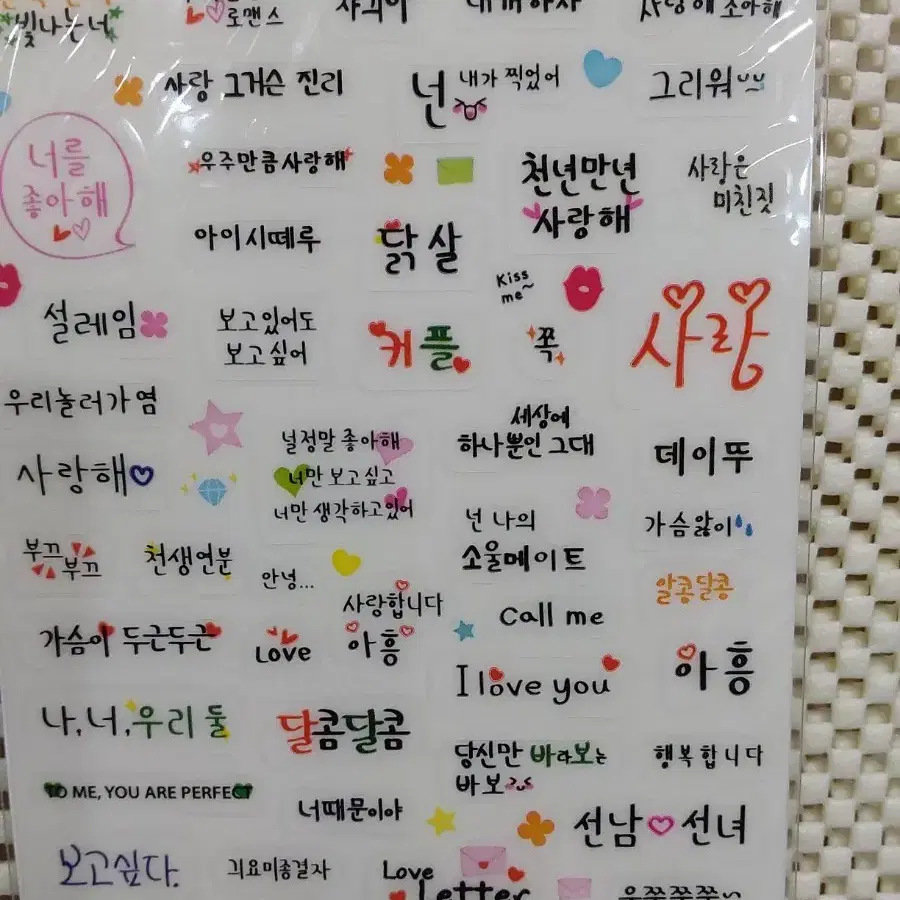 빛나는 너
로맨스
사랑해 조아해
사랑 그거슨 진리
넌 내가 찍었어
그리워
너를
좋아해
우주만큼사랑해
천년만년
사랑해
사랑은
미친짓
아이시떼루
닭살
Kiss
me~
설레임
보고있어도
보고싶어
커플
쪽
사랑
우리놀러가염
널정말 좋아해
너만 보고싶고
너만 생각하고있어
세상에
하나뿐인 그대
데이뚜
사랑해
넌 나의
소울메이트
가슴앓이
부끄
부끄
천생연분
안녕...
사랑합니다
call me
알콩달콩
가슴이 두근두근
Love
아흥
I love you
아흥
나,너,우리 둘
달콤달콤
당신만 바라보는
바보
행복합니다
TO ME, YOU ARE PERFECT
너때문이야
선남 선녀
보고싶다.
긔요미종결자
Love
Letter